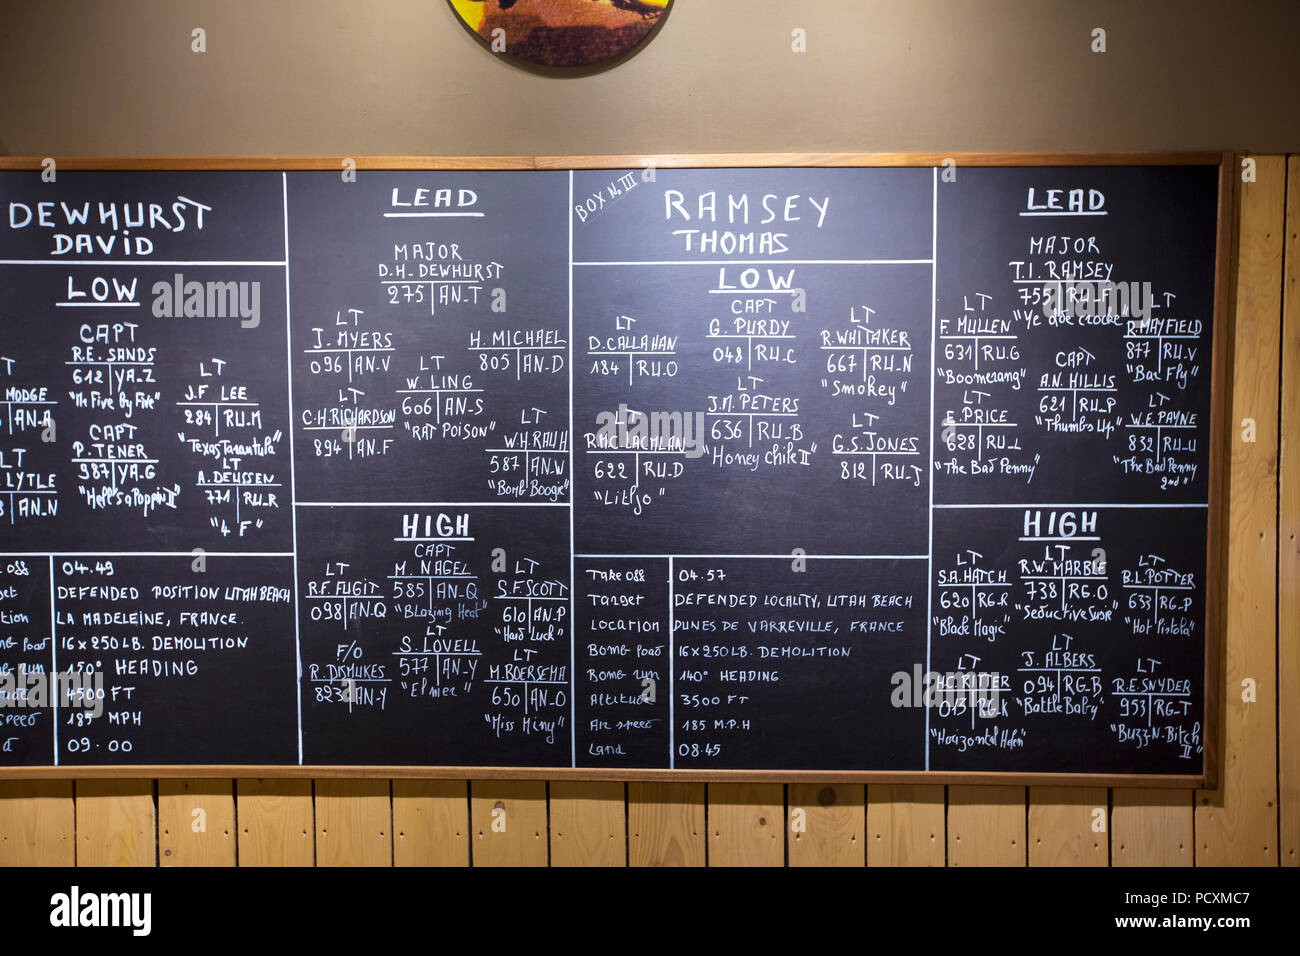 DEWHURST
DAVID
LOW
CAPT
R.E. SANDS
612 YA-Z
MODGE
AN-A
CAPT
P. TENER
987 YA-G
"Hell's a Poppin II"
LT
LYTLE
AN-N
LT
J.F LEE
284 RU-M
"Texas Tarantula"
LT
A. DEUSSEN
771 RU-R
"4 F"
off 04.49
DEFENDED POSITION UTAH BEACH
LA MADELEINE, FRANCE.
16 x 250 LB. DEMOLITION
150° HEADING
4500 FT
185 MPH
09.00
LEAD
MAJOR
D.H. DEWHURST
275 AN-T
LT
J. MYERS
096 AN-V
H. MICHAEL
805 AN-D
LT
W. LING
606 AN-S
"RAT POISON"
LT
C.H. RICHARDSON
894 AN-F
LT
W.H. RAUH
587 AN-W
"Bomb Boogie"
HIGH
CAPT
M. NAGEL
585 AN-Q
"Blazing Heat"
LT
R.F. FUGIT
098 AN-Q
LT
S.F. SCOTT
610 AN-P
"Hard Luck"
LT
S. LOVELL
577 AN-Y
"Elmer"
F/O
R. DISMUKES
823 AN-Y
LT
M. BOERSEMA
650 AN-O
"Miss Miny"
BOX N. III
RAMSEY
THOMAS
LOW
CAPT
G. PURDY
048 RU-C
LT
D. CALLAHAN
184 RU-O
LT
R. WHITAKER
667 RU-N
"Smokey"
LT
J.M. PETERS
636 RU-B
"Honey Chile II"
LT
R. MC. LACMLAN
622 RU-D
"Litljo"
LT
G.S. JONES
812 RU-J
Take off 04.57
Target DEFENDED LOCALITY, UTAH BEACH
Location DUNES DE VARREVILLE, FRANCE
Bomb load 16 x 250 LB. DEMOLITION
Bomb run 140° HEADING
Altitude 3500 FT
Air speed 185 M.P.H
Land 08.45
LEAD
MAJOR
T.I. RAMSEY
755 RU-F
"Ye old crocke"
LT
F. MULLEN
631 RU-G
"Boomerang"
LT
R. MAYFIELD
877 RU-V
"Bar Fly"
CAPT
A.N. HILLIS
621 RU-P
"Thumbs Up"
LT
E. PRICE
628 RU-L
"The Bad Penny"
LT
W.E. PAYNE
832 RU-U
"The Bad Penny
2nd"
HIGH
LT
R.W. MARBLE
738 RG-O
"Seductive Susie"
LT
S.A. HATCH
620 RG-R
"Black Magic"
LT
B.L. POTTER
633 RG-P
"Hot Pistola"
LT
J. ALBERS
094 RG-B
"Battle Baby"
LT
H.C. RITTER
013 RG-K
"Horizontal Helen"
LT
R.E. SNYDER
953 RG-T
"Buzz-N-Bitch
II"
a alamy stock photo
alamy
Image ID: PCXMC7
www.alamy.com